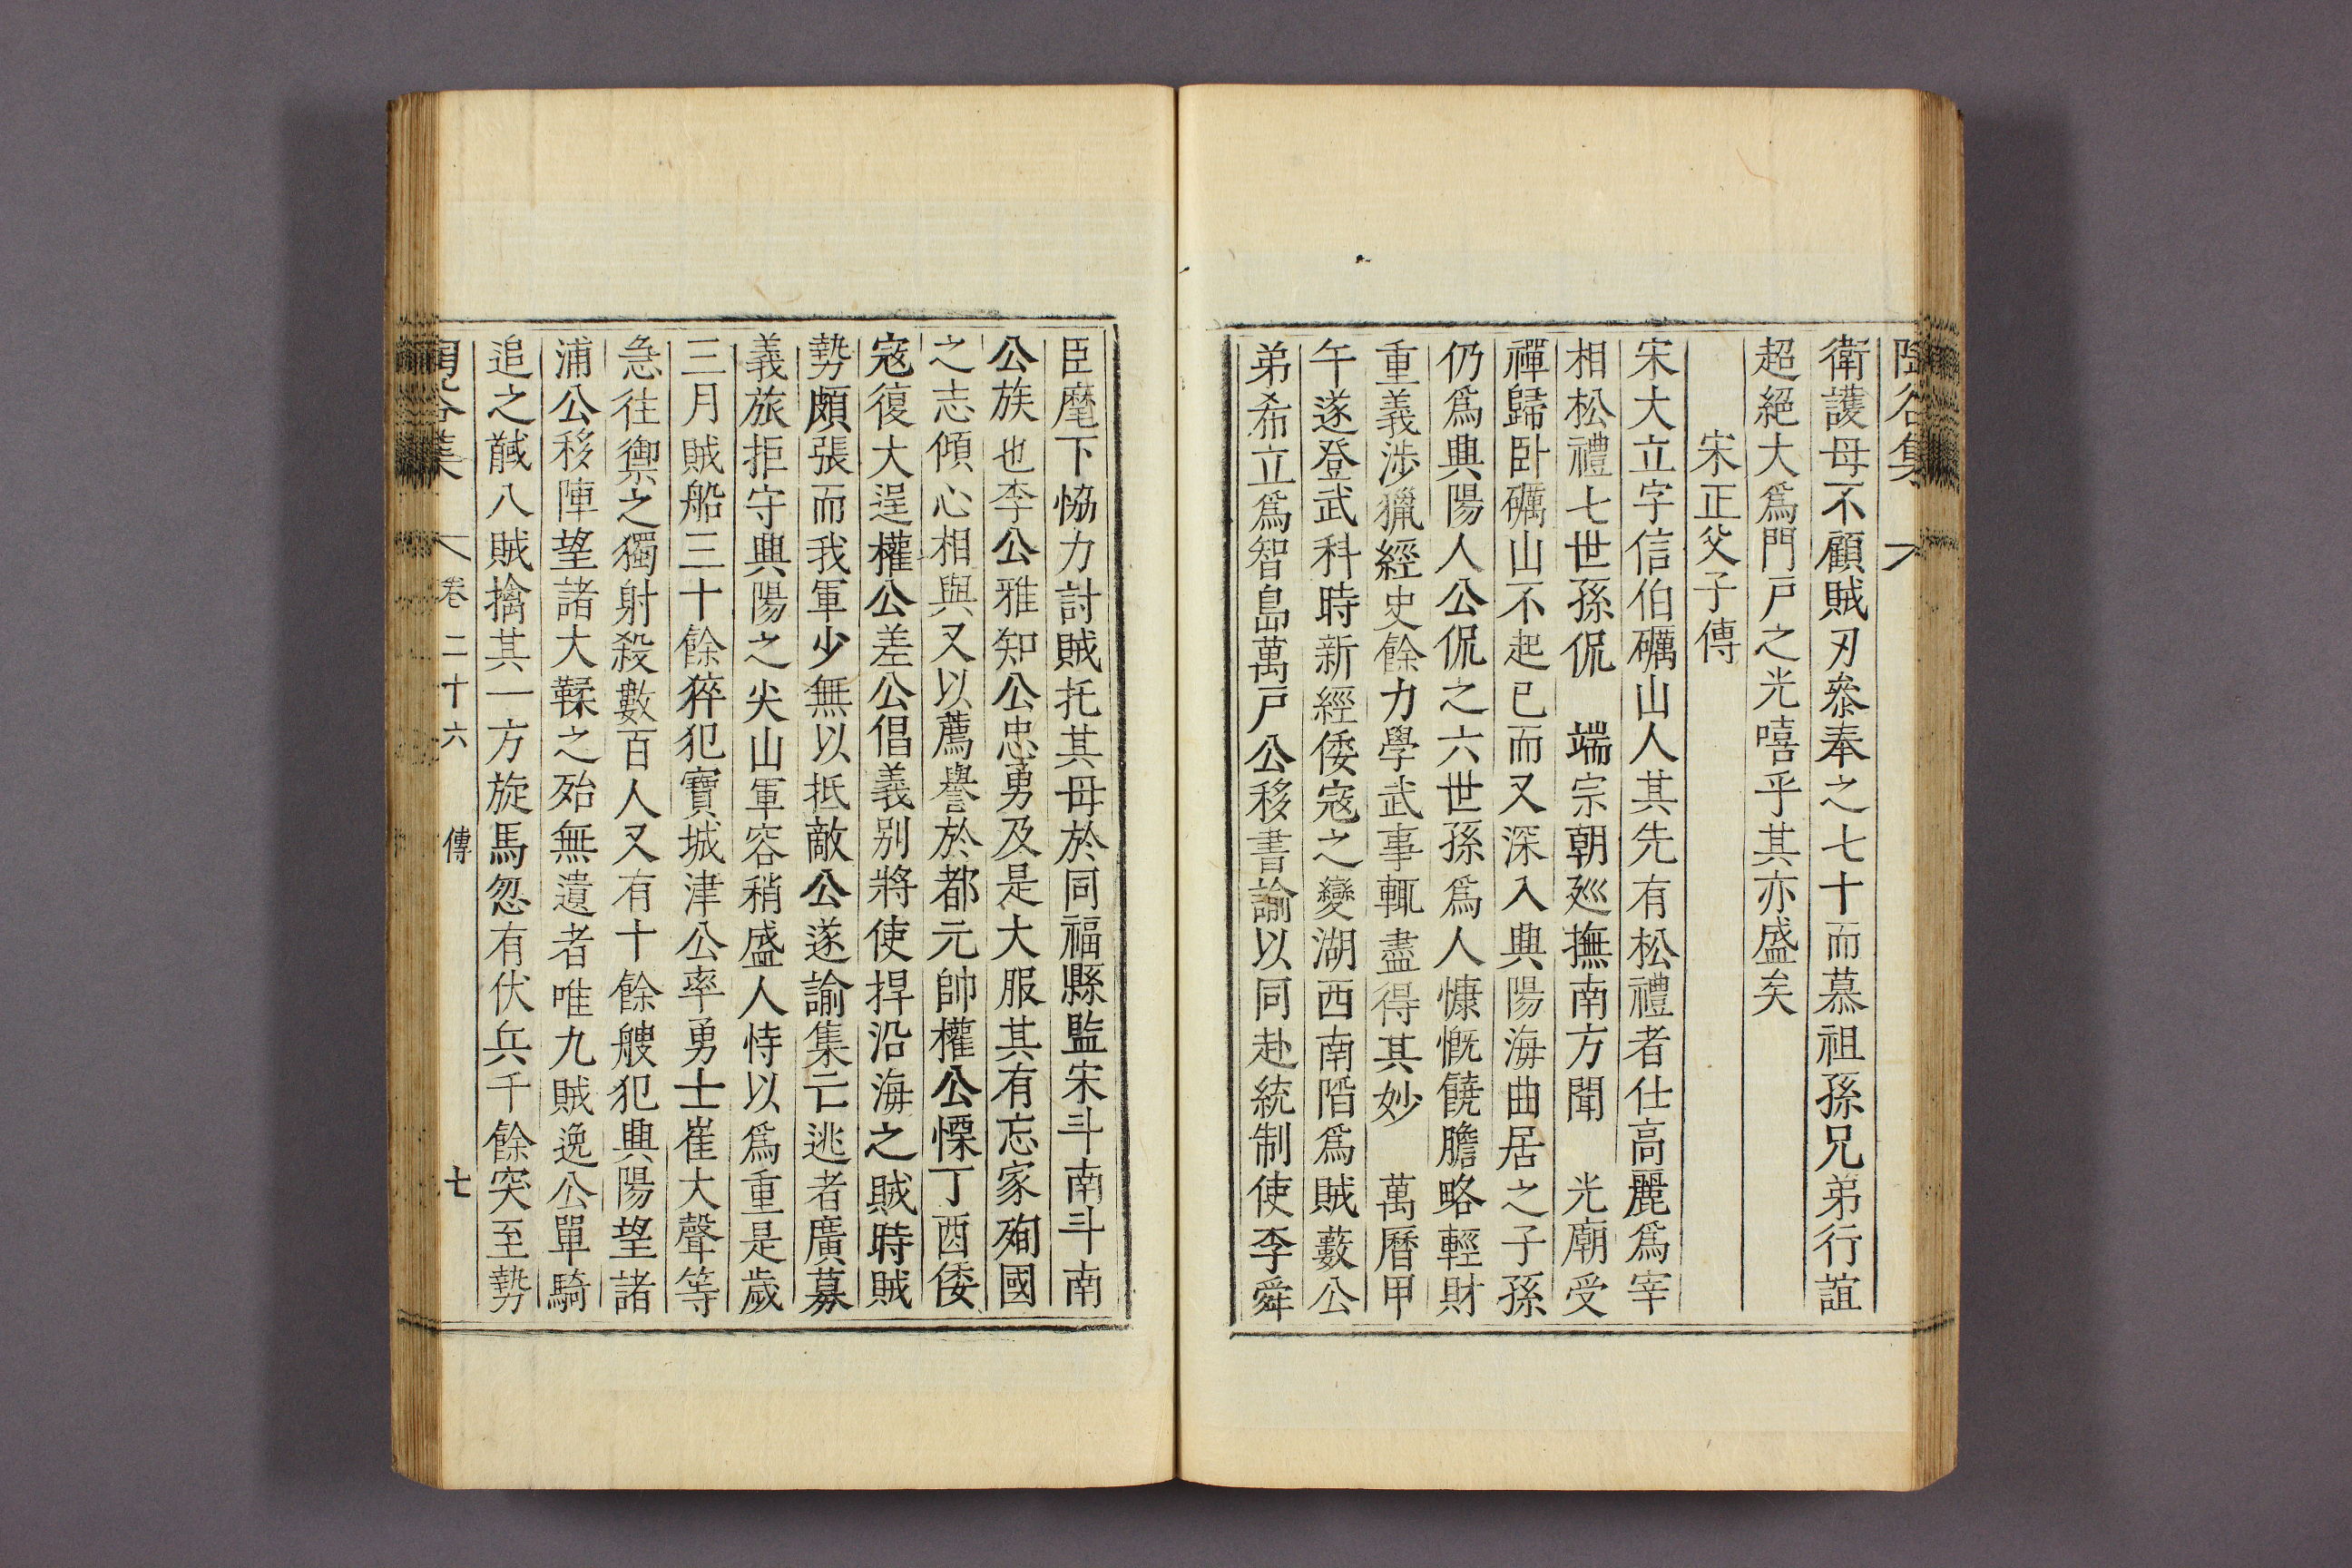 衛護母不顧賊刃叅奉之七十而慕祖孫兄弟行誼
超絕大爲門戶之光嘻乎其亦盛矣
宋正父子傳
宋大立字信伯礪山人其先有松禮者仕高麗爲宰
相松禮七世孫侃　端宗朝廵撫南方聞　光廟受
禪歸卧礪山不起已而又深入興陽海曲居之子孫
仍爲興陽人公侃之六世孫爲人慷慨饒膽略輕財
重義涉獵經史餘力學武事輒盡得其妙　萬曆甲
午遂登武科時新經倭寇之變湖西南陷爲賊藪公
弟希立爲智島萬戶公移書諭以同赴統制使李舜
臣麾下恊力討賊托其母於同福縣監宋斗南斗南
公族也李公雅知公忠勇及是大服其有忘家殉國
之志傾心相與又以薦譽於都元帥權公慄丁酉倭
寇復大逞權公差公倡義别將使捍沿海之賊時賊
勢頗張而我軍少無以抵敵公遂諭集亡逃者廣募
義旅拒守興陽之尖山軍容稍盛人恃以爲重是歲
三月賊船三十餘猝犯寶城津公率勇士崔大聲等
急往禦之獨射殺數百人又有十餘艘犯興陽望諸
浦公移陣望諸大鞣之殆無遺者唯九賊逸公單騎
追之馘八賊擒其一方旋馬忽有伏兵千餘突至勢
卷二十六　傳　七